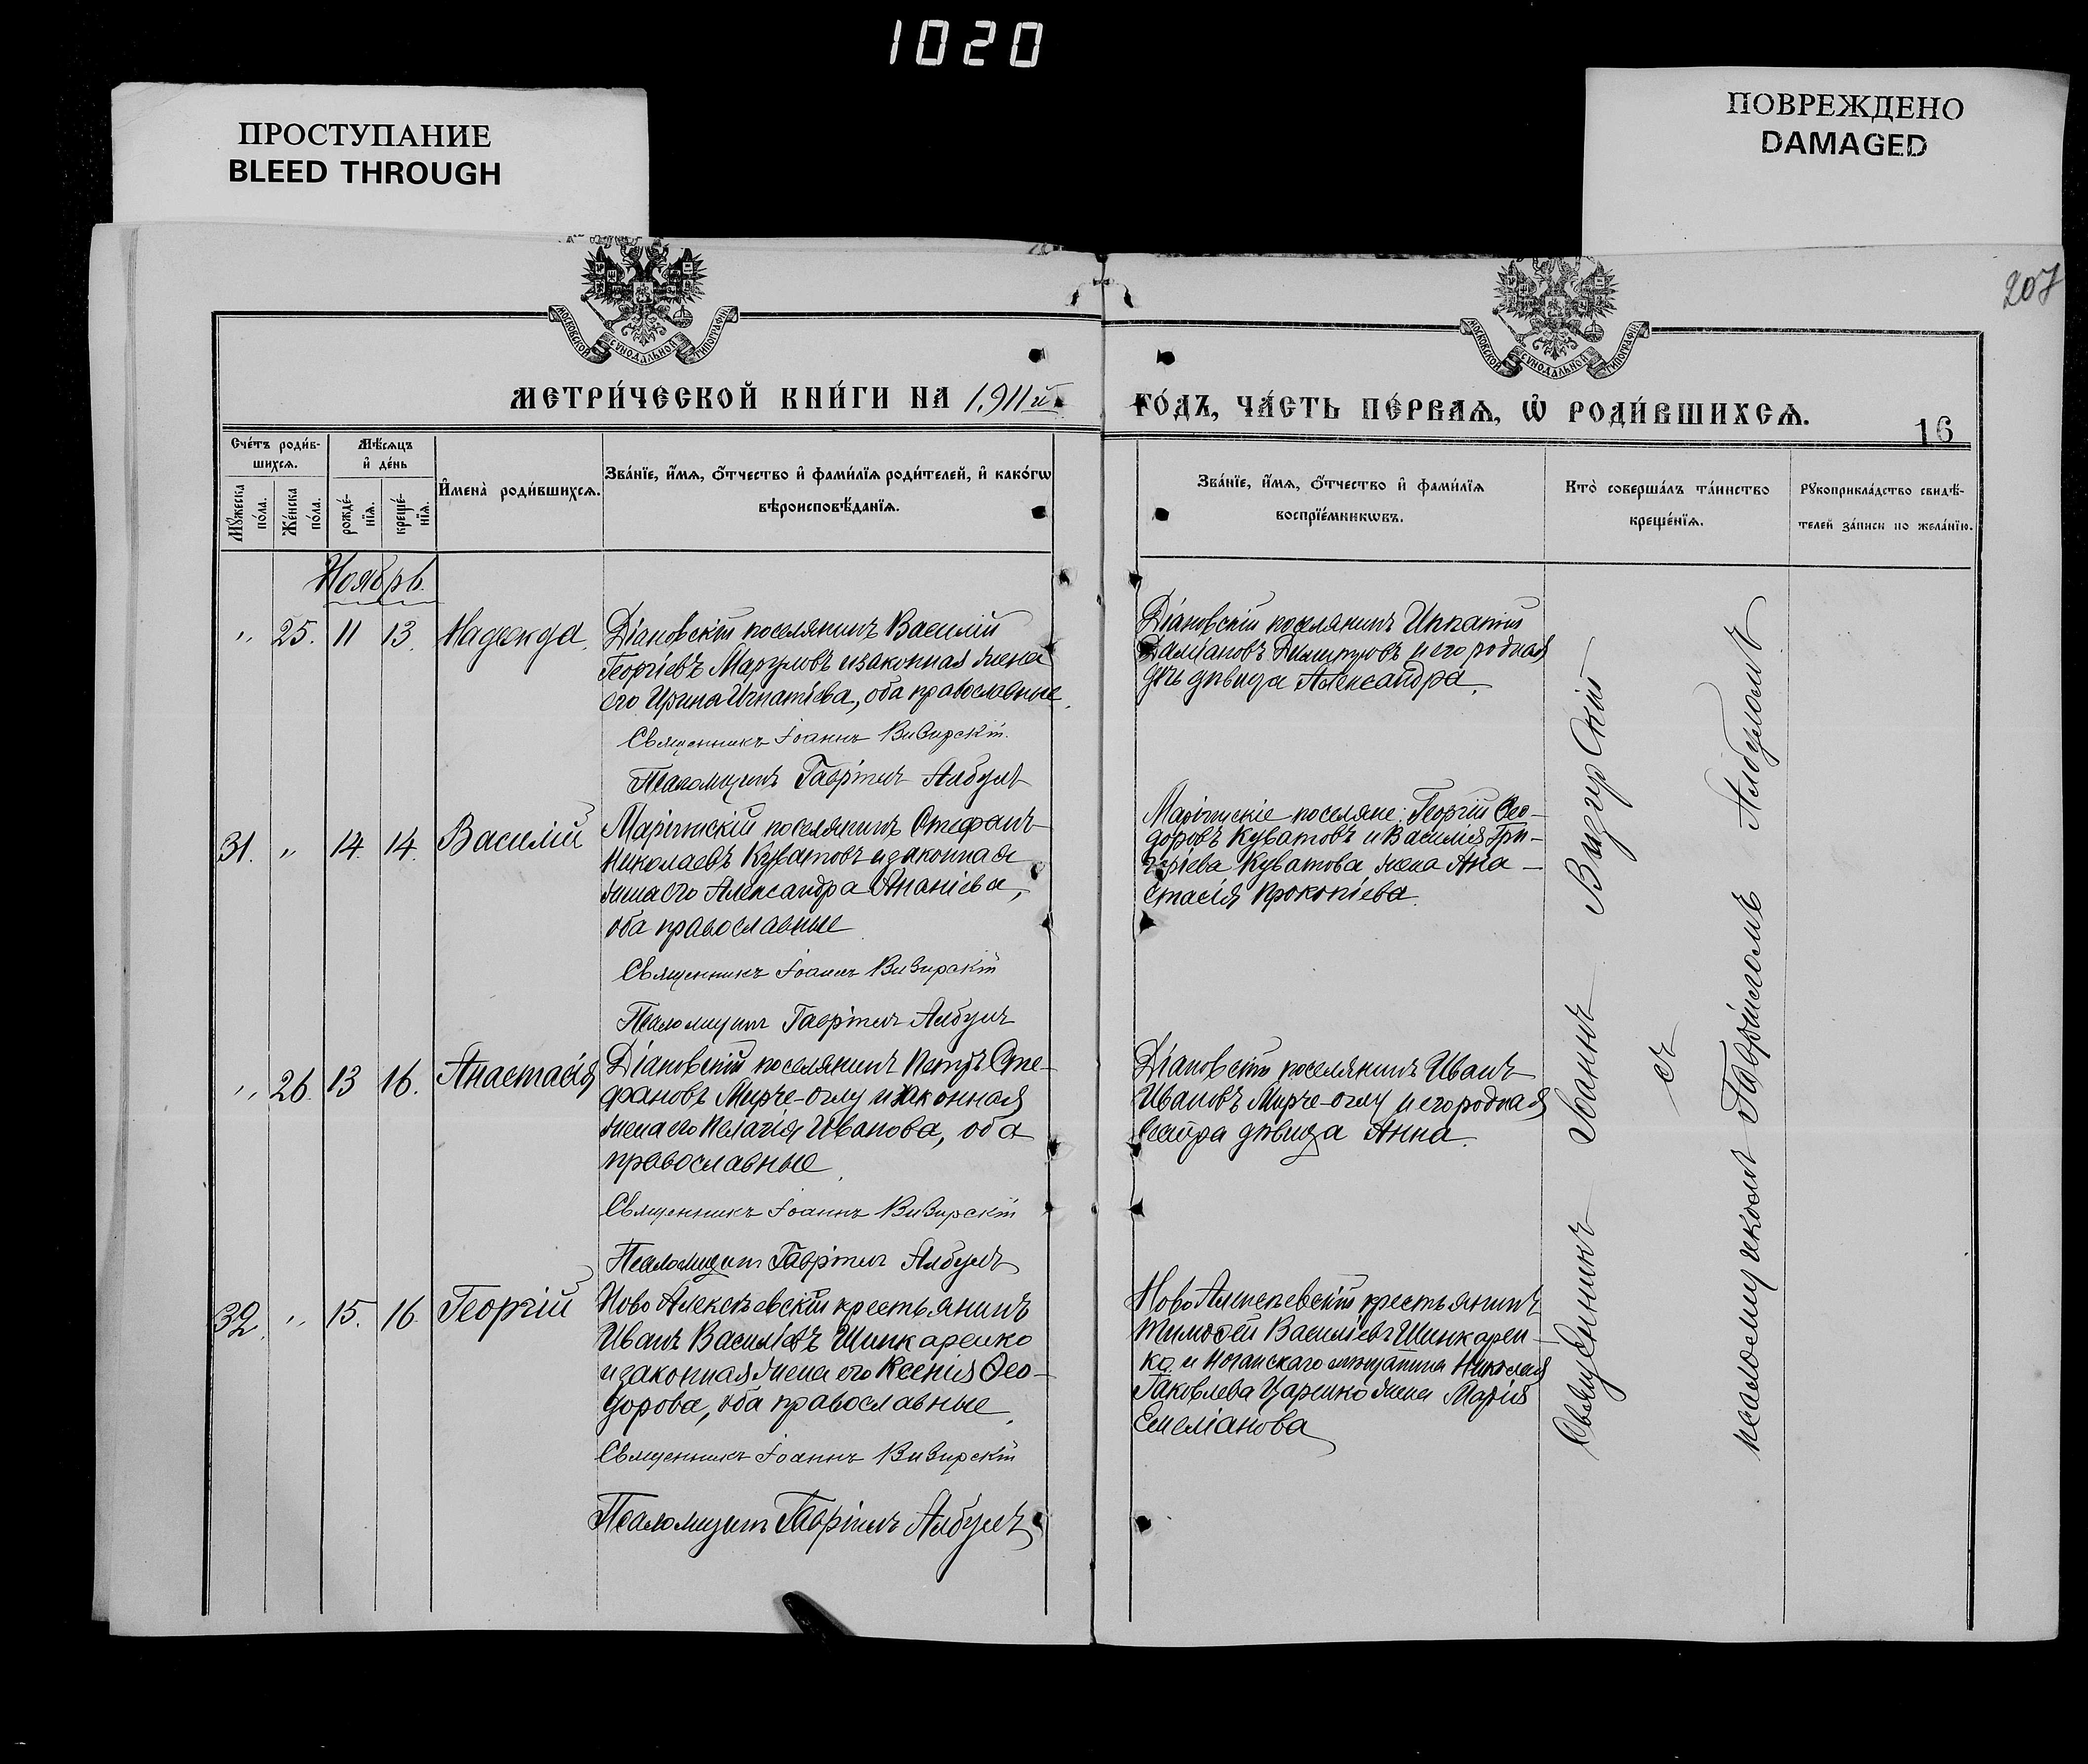 1020
ПРОСТУПАНИЕ
BLEED THROUGH
ПОВРЕЖДЕНО
DAMAGED
207
МОСКОВСКОЙ СУНОДАЛЬНОЙ ТИПОГРАФІИ
МОСКОВСКОЙ СУНОДАЛЬНОЙ ТИПОГРАФІИ
МЕТРИ́ЧЕСКОЙ КНИ́ГИ НА 1911й
ГО́ДЪ, ЧА́СТЬ ПЕ́РВАѦ, Ѡ РОДИ́ВШИХСѦ.
16
Сче́тъ роди́в-
шихсѧ.
Мѣ́сѧцъ
и҆ де́нь
Мꙋ́жеска по́ла.
Же́нска по́ла.
рожде́-
нїѧ.
креще́-
нїѧ.
И҆мена̀ роди́вшихсѧ.
Зва́нїе, и҆́мѧ, ѻ҆́тчество и҆ фами́лїѧ роди́телей, и҆ како́гѡ
вѣроисповѣ́данїѧ.
Зва́нїе, и҆́мѧ, ѻ҆́тчество и҆ фами́лїѧ
воспрїе́мникѡвъ.
Кто̀ соверша́лъ та́инство
креще́нїѧ.
Рꙋкоприкла́дство свидѣ́-
телей за́писи по жела́нїю.
Ноябрь.
" 25. 11 13. Надежда.
Діановскій поселянинъ Василій
Георгіевъ Маргуловъ и законная жена
его Ирина Игнатіева, оба православные.
Священникъ Іоаннъ Визирскій.
Псаломщикъ Гавріилъ Албулъ
Діановскій поселянинъ Игнатій
Даміановъ и его родная
дочь дѣвица Александра.
31. " 14. 14. Василій
Маріинскій поселянинъ Стефанъ
Николаевъ Куватовъ и законная
жена его Александра Ананіева,
оба православные
Священникъ Іоаннъ Визирскій
Псаломщикъ Гавріилъ Албулъ
Маріинскіе поселяне: Георгій Ѳео-
доровъ Куватовъ и Василія Гри-
горіева Куватова жена Ана-
стасія Прокопіева.
" 26. 13 16. Анастасія
Діановскій поселянинъ Петръ Сте-
фановъ Мирче-оглу и законная
жена его Пелагія Иванова, оба
православные.
Священникъ Іоаннъ Визирскій
Псаломщикъ Гавріилъ Албулъ
Діановскій поселянинъ Иванъ
Ивановъ Мирче-оглу и его родная
сестра дѣвица Анна.
32. " 15. 16. Георгій
Ново Алексѣевскій крестьянинъ
Иванъ Василіевъ Шинкаренко
и законная жена его Ксенія Ѳео-
дорова, оба православные.
Священникъ Іоаннъ Визирскій
Псаломщикъ Гавріилъ Албулъ
Ново Алексѣевскій крестьянинъ
Тимоѳей Василіевъ Шинкарен-
ко и Ногайскаго мѣщанина Николая
Яковлева Царенко жена Марія
Емеліанова
Священникъ Іоаннъ Визирскій
съ
псаломщикомъ Гавріиломъ Албуломъ